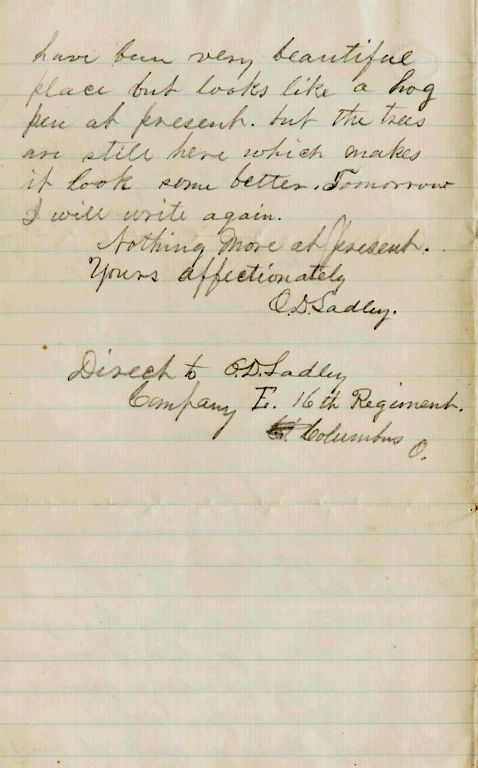 have been very beautiful
place but looks like a hog
pen at present. but the trees
are still here which makes
it look some better. Tomorrow
I will write again.
Nothing More at present.
Yours affectionately
O.D. Ladley.
Direct to O.D. Ladley
Company E. 16th Regiment.
Columbus
O.